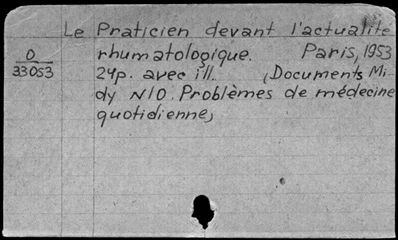 Le Praticien devant l'actualité
O
33053
rhumatologique. Paris, 1953
24p. avec ill. (Documents Mi
dy N10. Problèmes de médecine
quotidienne)